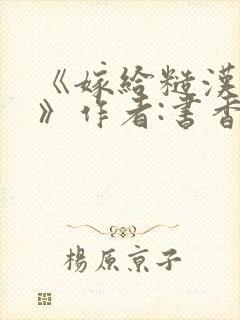 《嫁给糙漢
》作者:書香
楊原京子